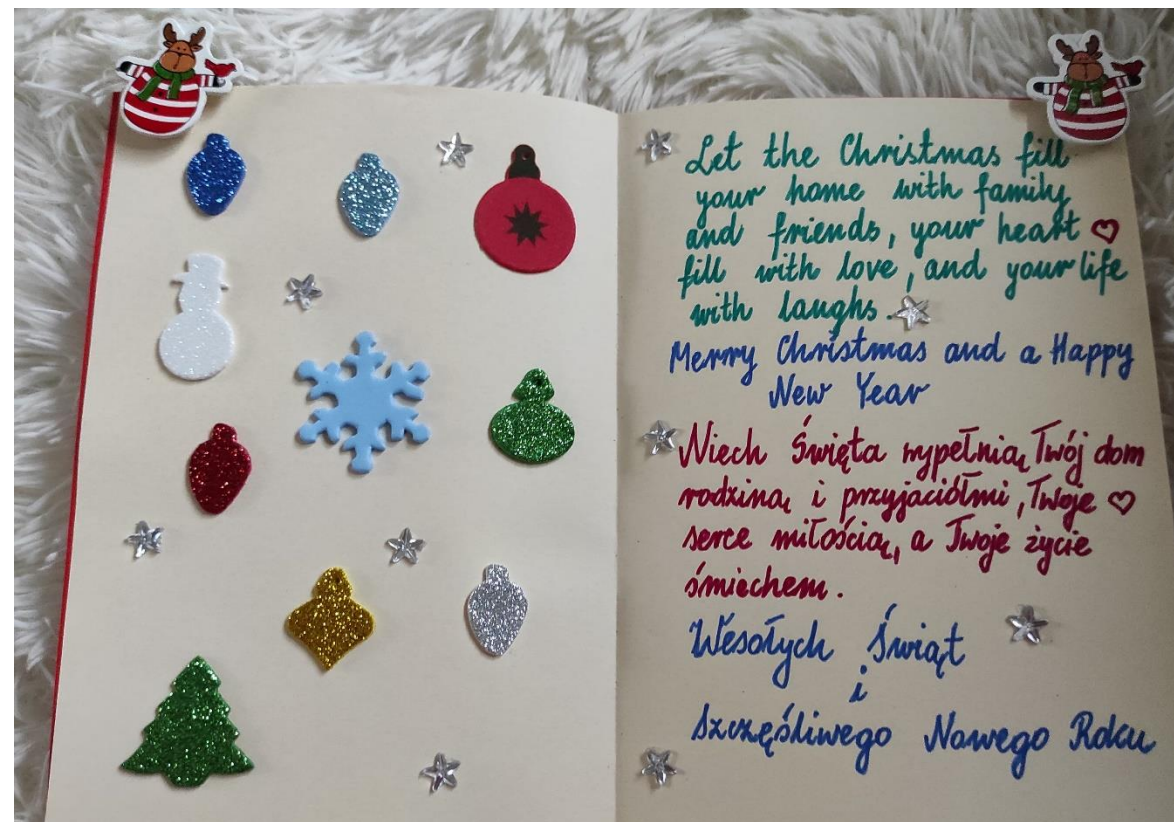 Let the Christmas fill
your home with family
and friends, your heart ♡
fill with love, and your life
with laughs.
Merry Christmas and a Happy
New Year
Niech Święta wypełnią Twój dom
rodziną i przyjaciółmi, Twoje ♡
serce miłością, a Twoje życie
śmiechem.
Wesołych Świąt
i
Szczęśliwego Nowego Roku